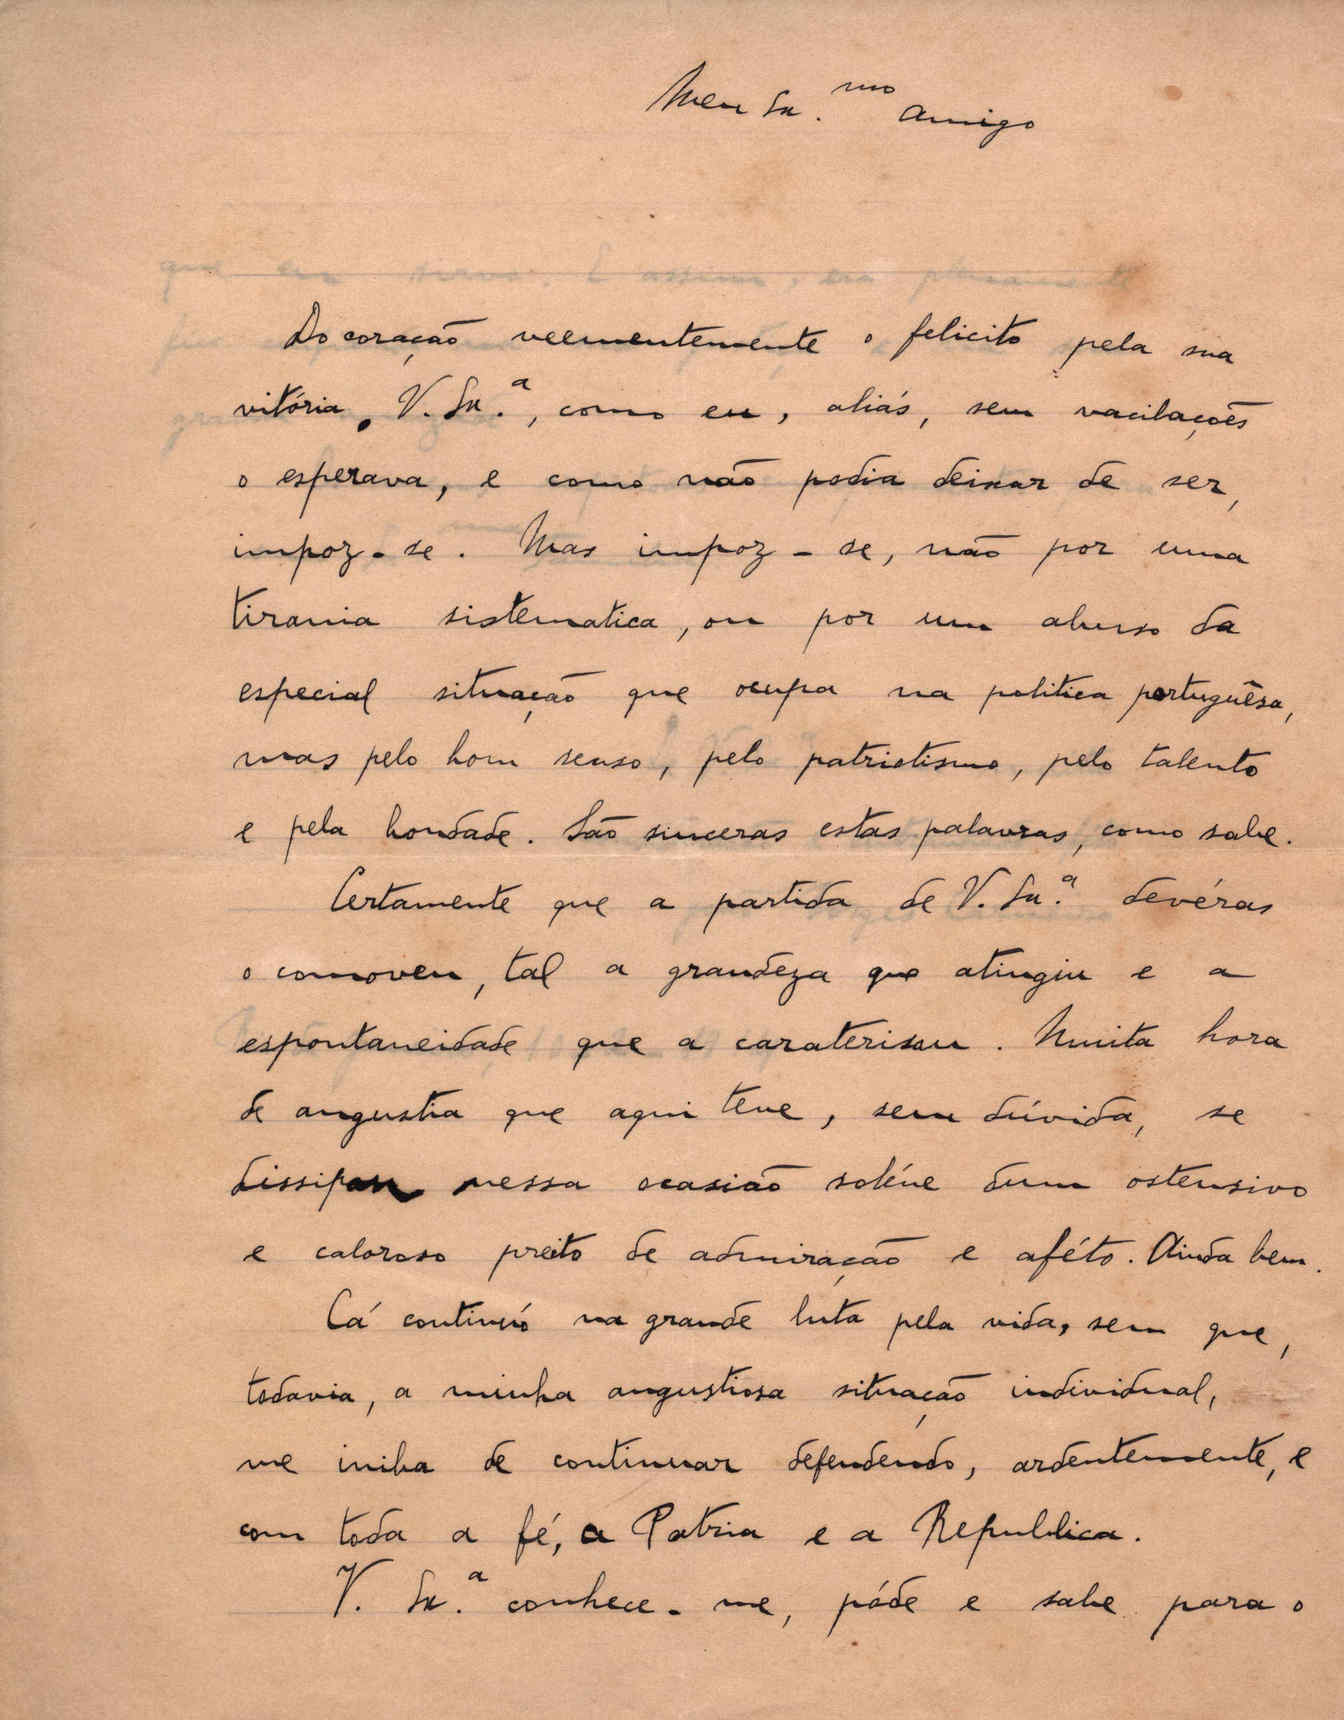 Meu Ex.mo Amigo
Do coração veementemente o felicito pela sua
vitória. V. Ex.a, como eu, aliás, sem vacilações
o esperava, e como não podia deixar de ser,
impoz-se. Mas impoz-se, não por uma
tirania sistematica, ou por um abuso da
especial situação que ocupa na politica portuguêsa,
mas pelo bom senso, pelo patriotismo, pelo talento
e pela bondade. São sinceras estas palavras, como sabe.
Certamente que a partida de V. Ex.a devéras
o comoveu, tal a grandeza que atingiu e a
espontaneidade que a caraterisou. Muita hora
de angustia que aqui teve, sem dúvida, se
dissipou nessa ocasião soléne dum ostensivo
e caloroso preito de admiração e aféto. Ainda bem.
Cá continúo na grande luta pela vida, sem que,
todavia, a minha angustiosa situação individual,
me iniba de continuar defendendo, ardentemente, e
com toda a fé, a Patria e a Republica.
V. Ex.a conhece-me, póde e sabe para o